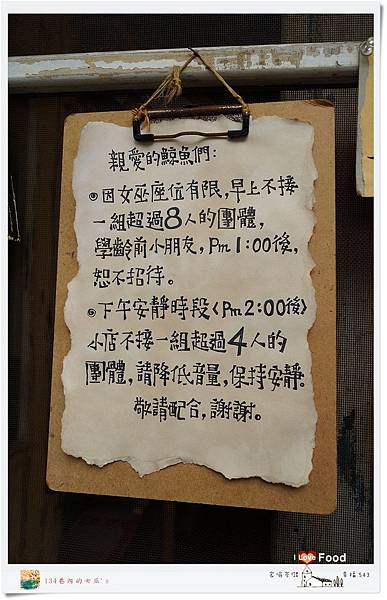 親愛的鯨魚們:
◎因女巫座位有限,早上不接
一組超過8人的團體,
學齡前小朋友,Pm1:00後,
恕不招待。
◎下午安靜時段<Pm2:00後>
小店不接一組超過4人的
團體,請降低音量,保持安靜。
敬請配合,謝謝。
I Love Food
134巷內的女巫's
幸福543